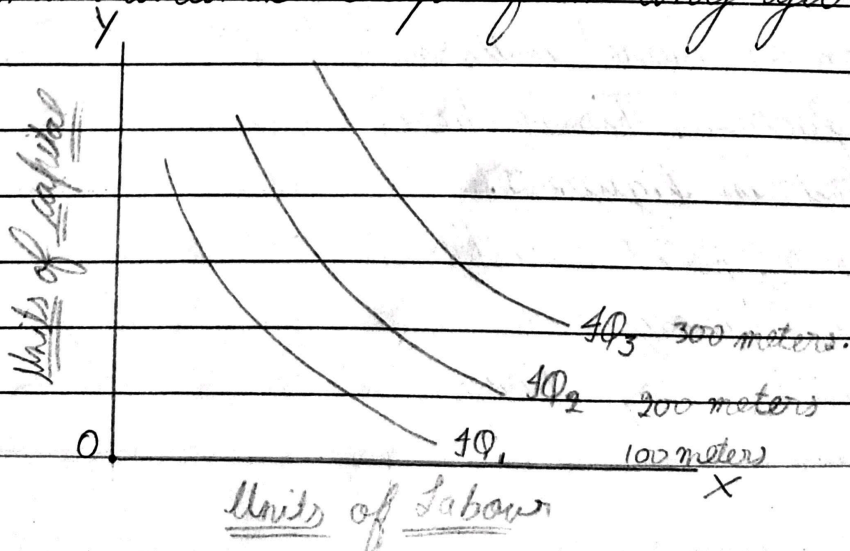 Y
Units of capital
IQ3 300 meters.
IQ2 200 meters
O IQ1 100 meters
X
Units of Labour